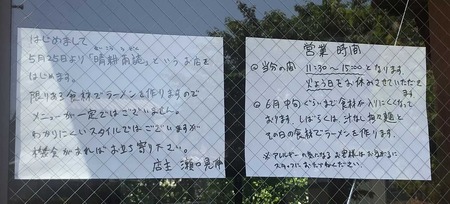 はじめまして
5月25日より「晴耕雨読」というお店を
はじめます。
限りある食材でラーメンを作りますので
メニューが一定ではございません。
わかりにくいスタイルではございますが
機会があればお立ち寄り下さい。
店主 瀬口
営業時間
当分の間 11:30〜15:00となります。
火よう日をお休みさせていただきます
6月中旬ぐらいまで食材が入りにくくなって
おります。しばらくは、汁なし担々麺と
その日の食材でラーメンを作ります。
※アレルギーの気になるお客様はお手数ですが
スタッフにおたずねください。